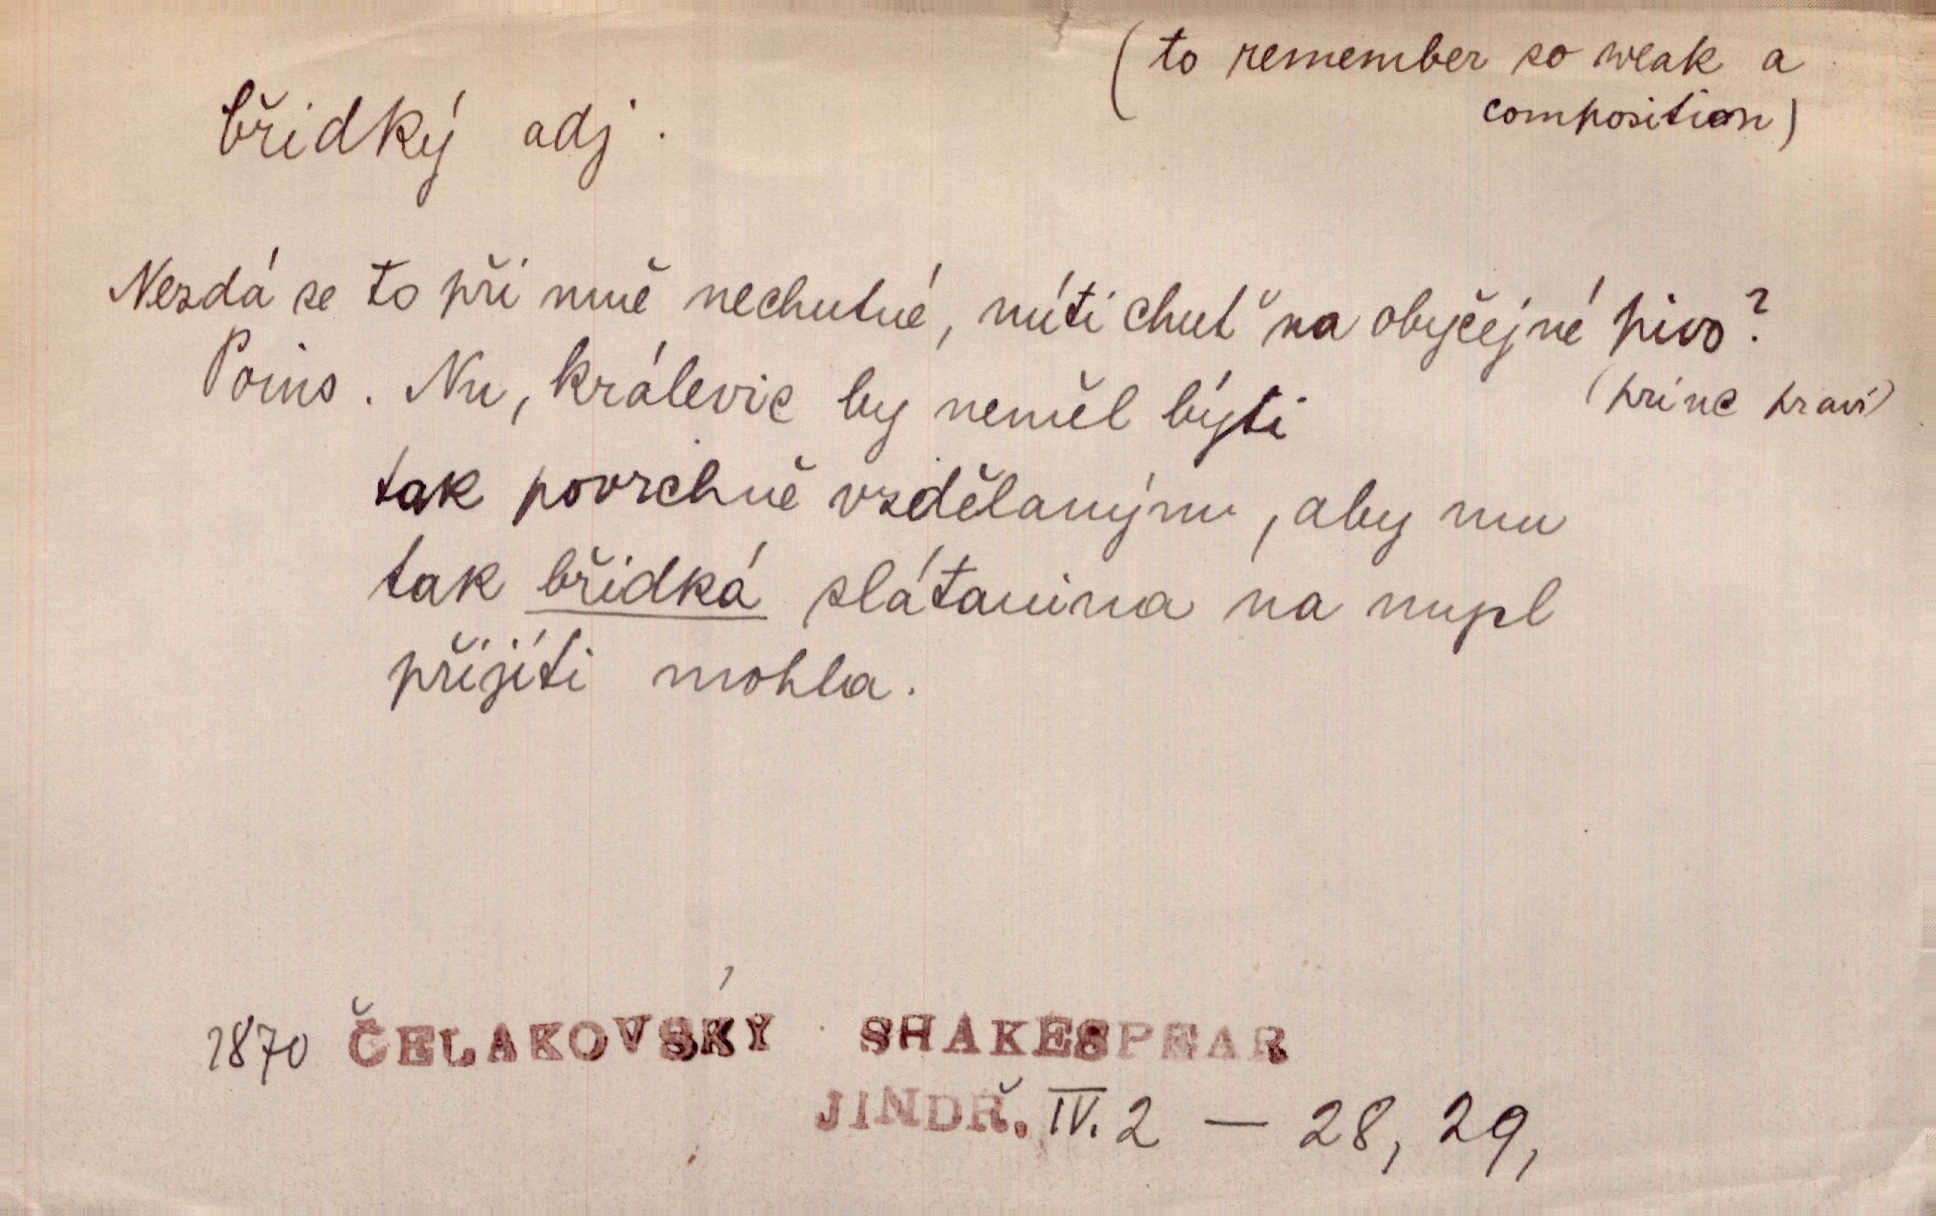 (to remember so weak a
composition)
břidký adj.
Nezdá se to při mně nechutné, míti chuť na obyčejné pivo?
(princ praví)
Poins. Nu, králevic by neměl býti
tak povrchně vzdělaným, aby mu
tak břidká slátanina na mysl
přijíti mohla.
1870 ČELAKOVSKÝ SHAKESPEAR
JINDŘ. IV. 2 — 28, 29,